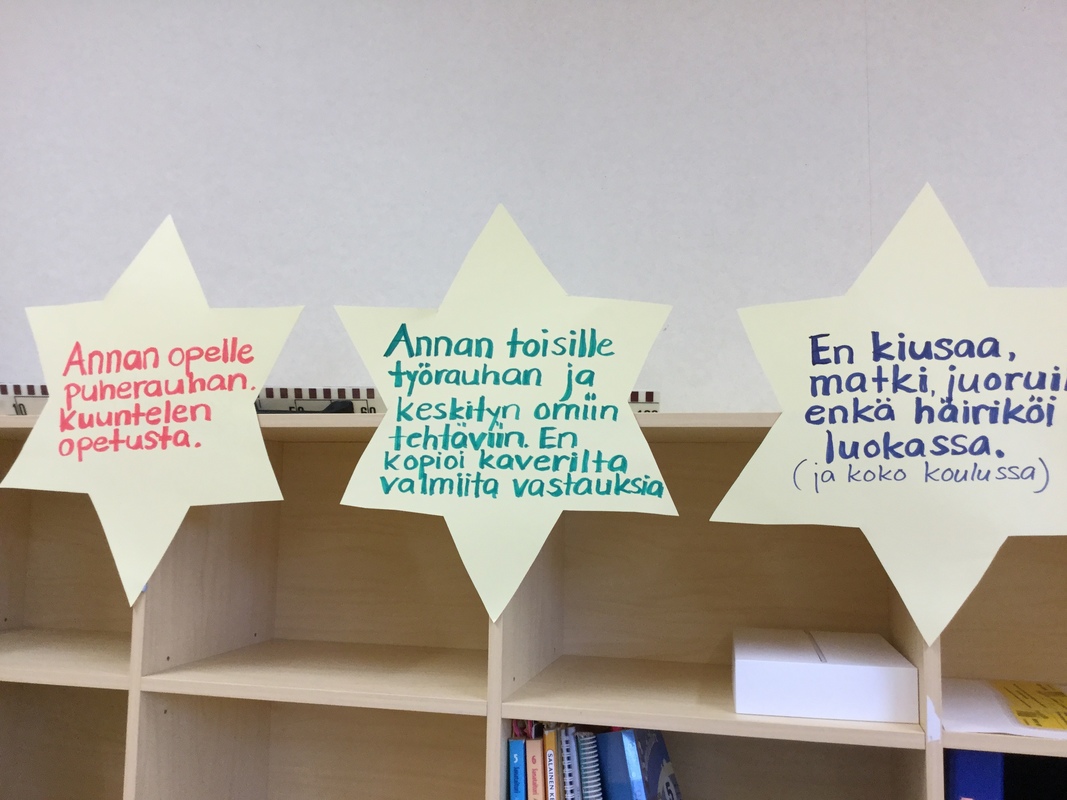 Annan opelle
puherauhan.
Kuuntelen
opetusta.
Annan toisille
työrauhan ja
keskityn omiin
tehtäviin. En
kopioi kaverilta
valmiita vastauksia
En kiusaa,
matki, juorui
enkä häiriköi
luokassa.
(ja koko koulussa)
SALAINEN